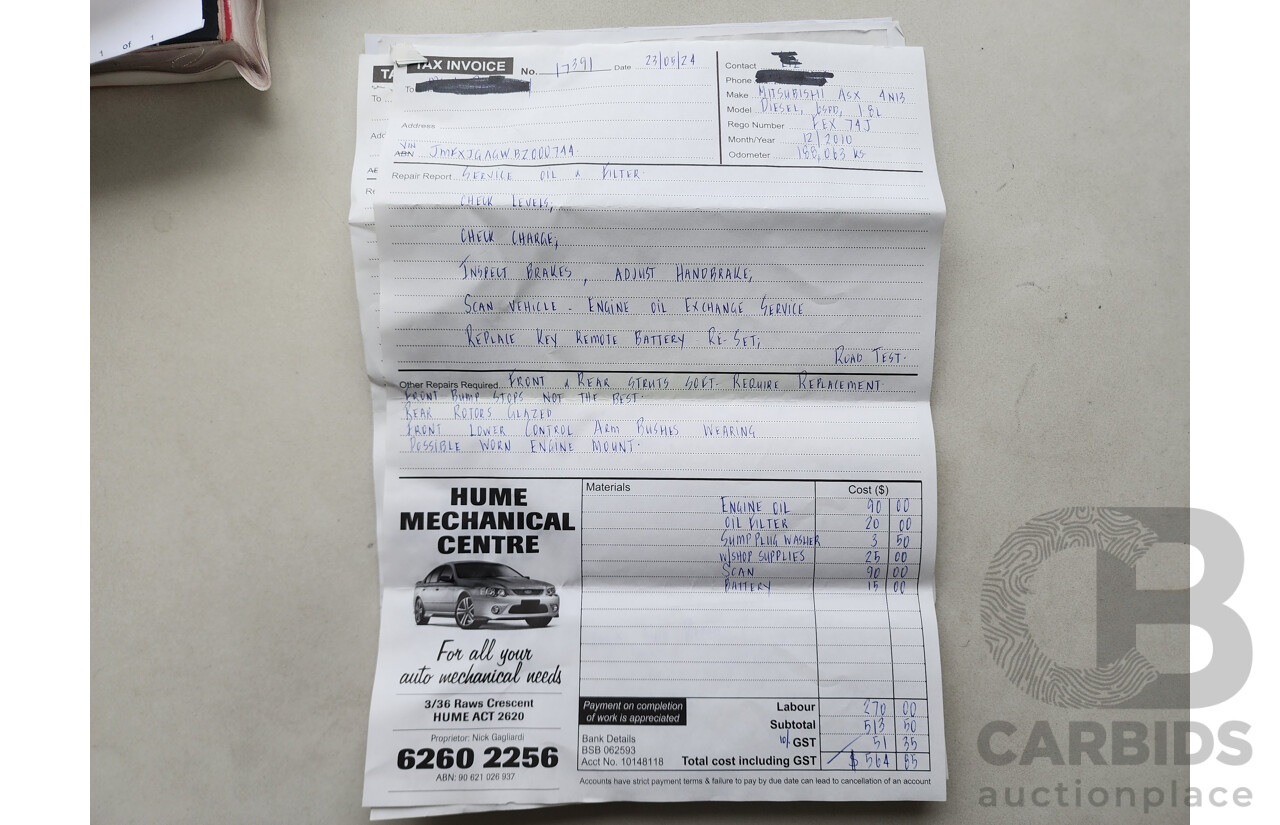 1 of 1
TAX INVOICE No. 17391 Date 23/09/24
To
Address
VIN
ABN
Contact
Phone
Make MITSUBISHI ASX 4N13
Model DIESEL, 6SPD, 1.8L
Rego Number 74J
Month/Year 12/2010
Odometer 188,063 KS
Repair Report SERVICE OIL & FILTER.
CHECK LEVELS;
CHECK CHARGE;
INSPECT BRAKES, ADJUST HANDBRAKE;
SCAN VEHICLE - ENGINE OIL EXCHANGE SERVICE
REPLACE KEY REMOTE BATTERY RE-SET;
ROAD TEST.
Other Repairs Required FRONT & REAR STRUTS SOFT. REQUIRE REPLACEMENT
FRONT BUMP STOPS NOT THE BEST.
REAR ROTORS GLAZED
FRONT LOWER CONTROL ARM BUSHES WEARING
POSSIBLE WORN ENGINE MOUNT.
HUME
MECHANICAL
CENTRE
For all your
auto mechanical needs
3/36 Raws Crescent
HUME ACT 2620
Proprietor: Nick Gagliardi
6260 2256
ABN: 90 621 026 937
Materials Cost ($)
ENGINE OIL 90 00
OIL FILTER 20 00
SUMP PLUG WASHER 3 50
W/SHOP SUPPLIES 25 00
SCAN 90 00
BATTERY 15 00
Payment on completion
of work is appreciated
Bank Details
BSB 062593
Acct No. 10148118
Labour 270 00
Subtotal 513 50
10% GST 51 35
Total cost including GST $ 564 85
Accounts have strict payment terms & failure to pay by due date can lead to cancellation of an account
CB
CARBIDS
auctionplace